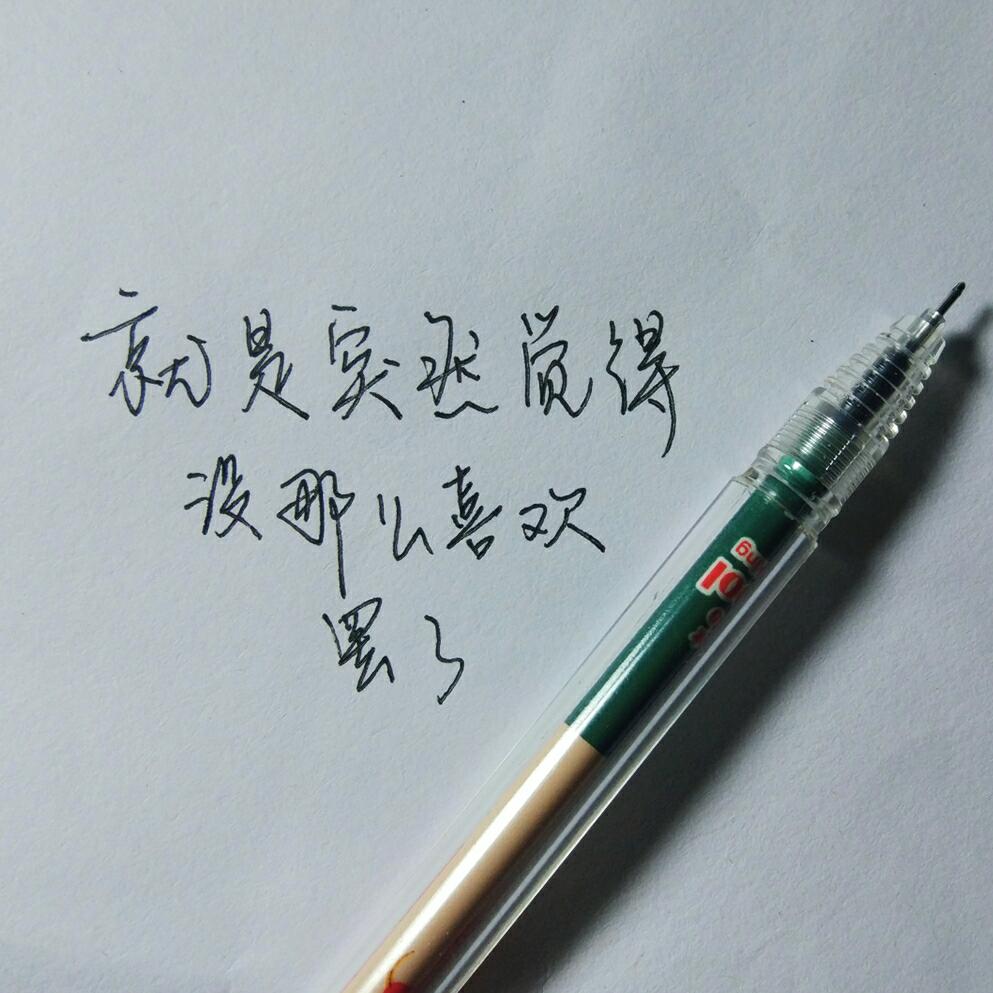 就是突然觉得
没那么喜欢
罢了